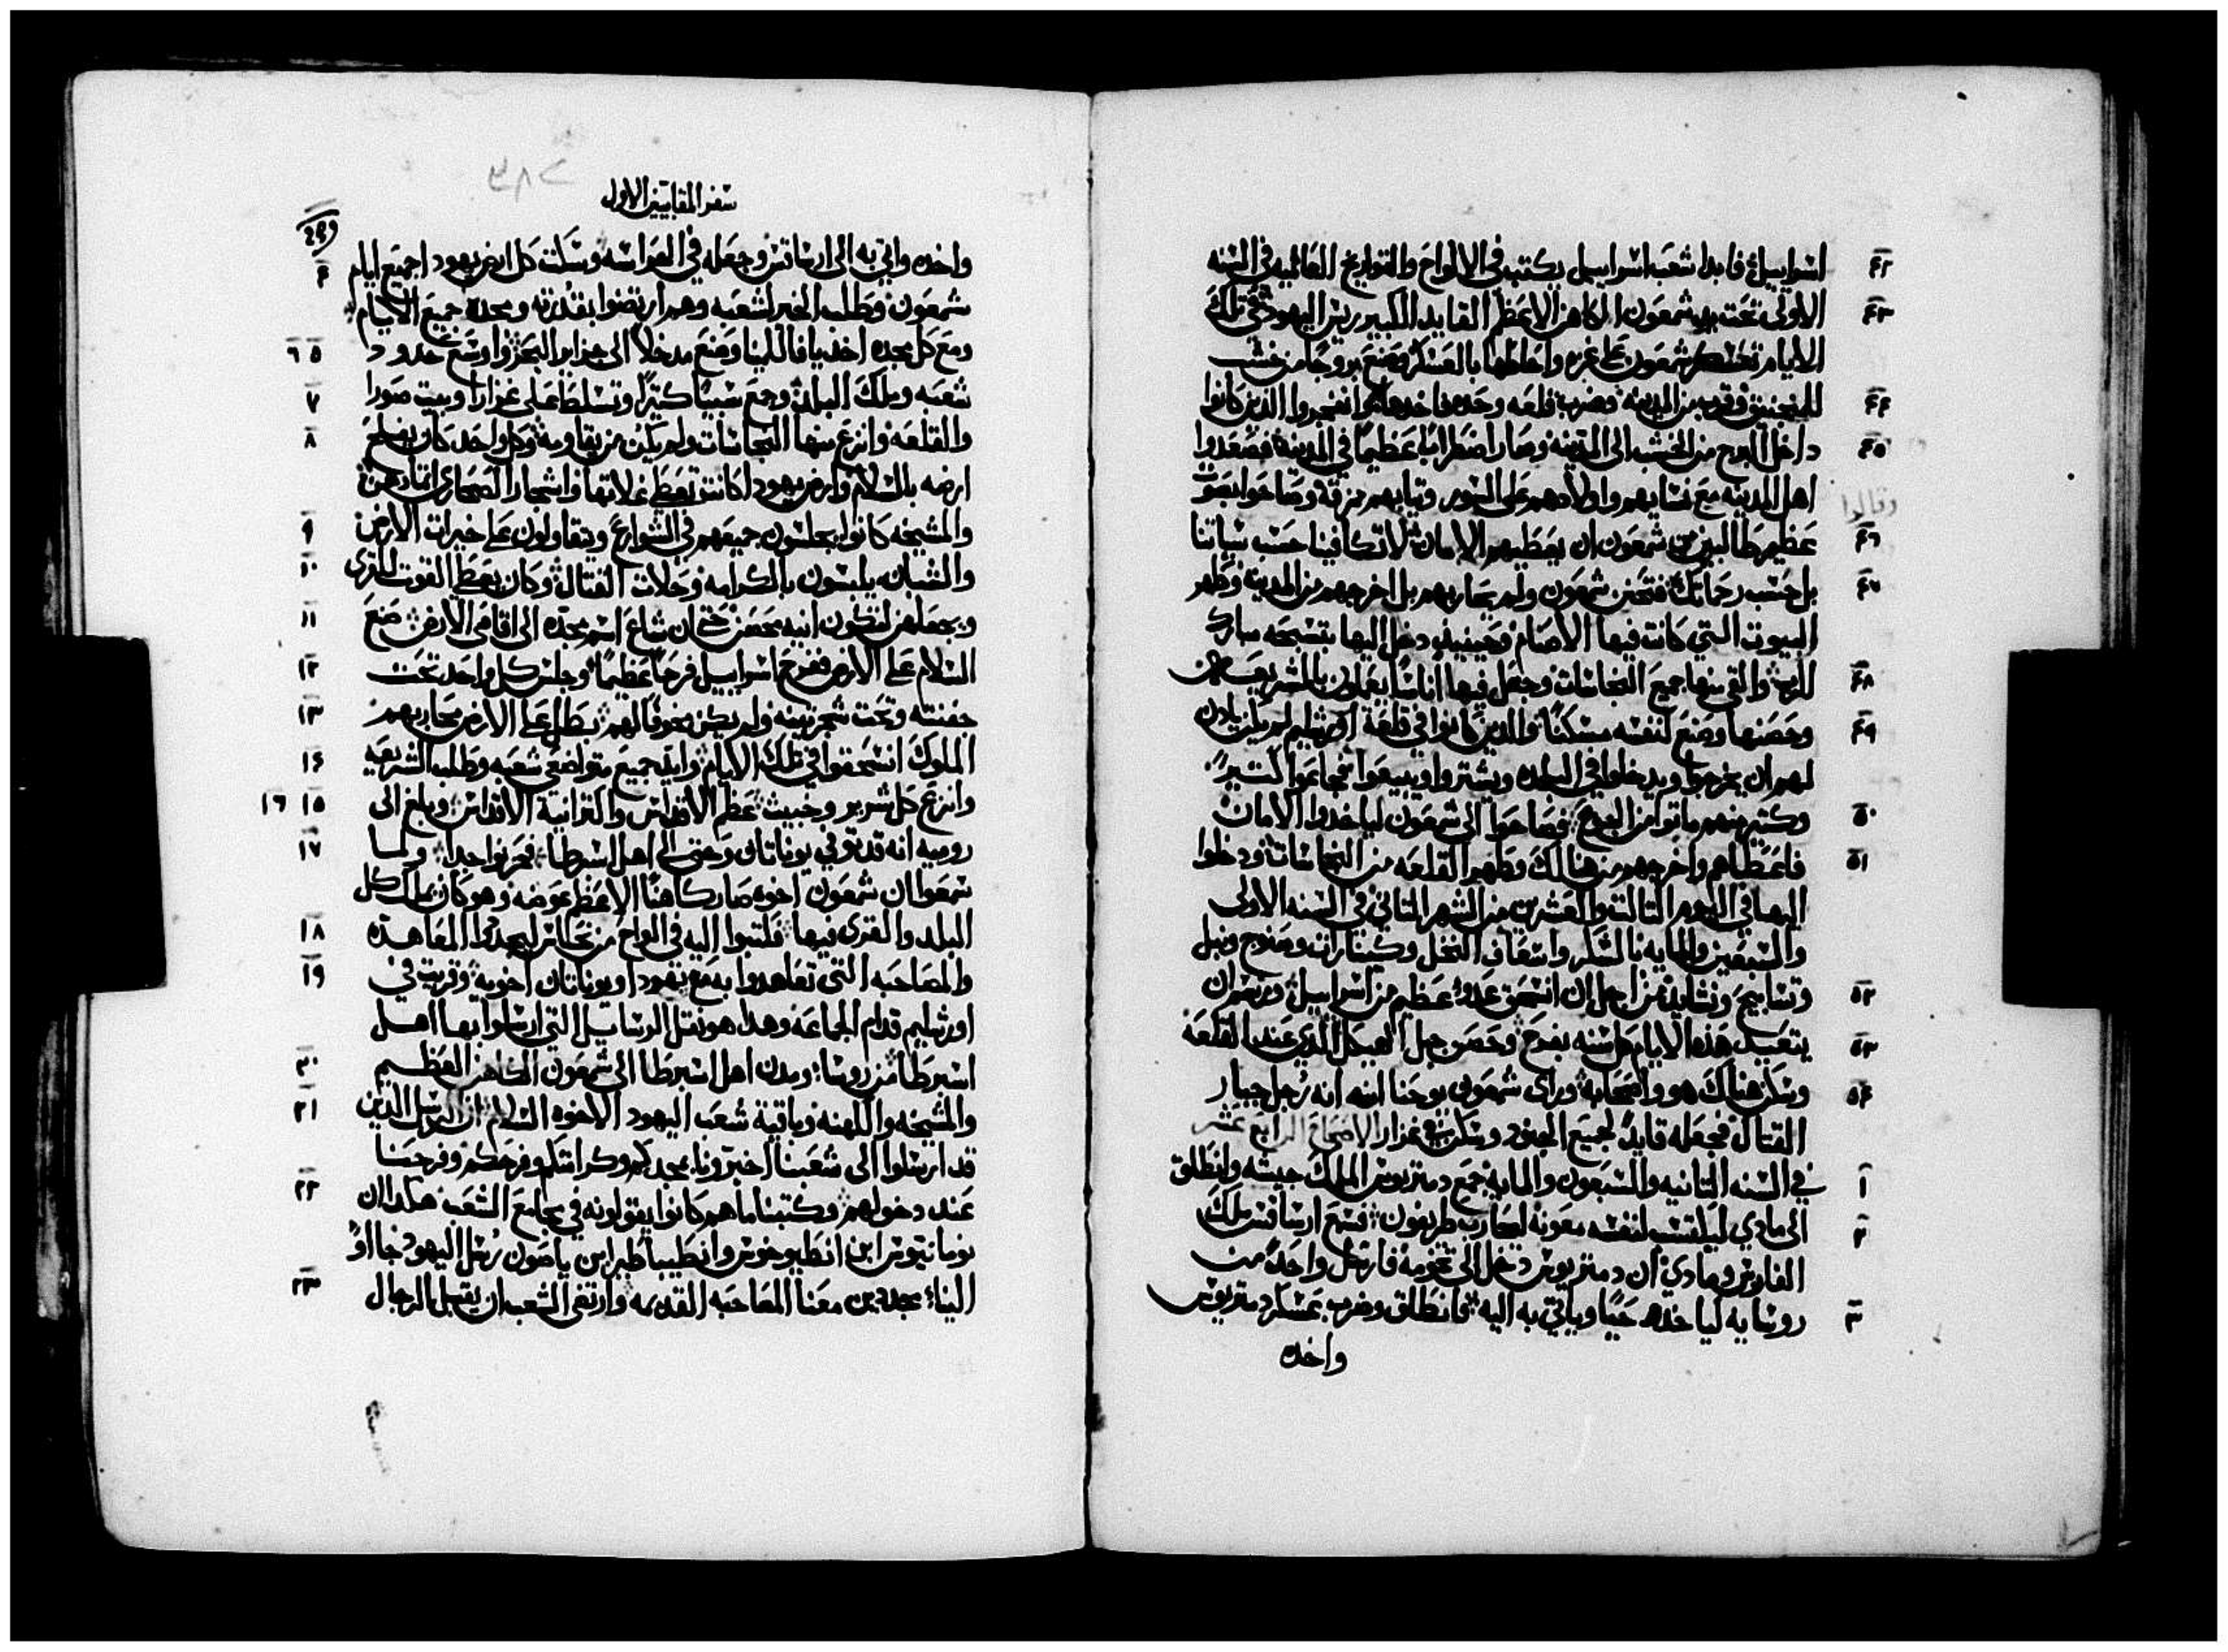 ٤٢ اسراييل فابدا شعب اسراييل يكتب في الالواح والتواريخ العاليه في السنه
٤٣ الاولى تحت يد شمعون الكاهن الاعظم القايد الكبير ريس اليهود في تلك
الايام تعسكر شمعون على غزه واحاطها بالعسكر وصنع بروجا من خشب
٤٤ للمنجنيق وقربه من المدينه وضرب قلعه وحده فاخدها وانفجروا الدين كانوا
٤٥ داخل البرج من الخشب الى المدينه وصار اضطرابا عظيما في المدينه فصعدوا
اهل المدينه مع نسايهم واولادهم على السور وتيابهم مزقه وصاحوا بصوت
وقالوا
٤٦ عظيم طالبين من شمعون ان يعطيهم الامان لا تكافينا حسب سياتنا
٤٧ بل حسب رحماتك فتحنن شمعون ولم يحاربهم بل اخرجهم من المدينه وطهر
البيوت التي كانت فيها الاصنام وحينيد دخل اليها بتسبحه مبارك
٤٨ للرب والقى منها جميع النجاسات وجعل فيها اناسا يعملون بالشريعه
٤٩ وحصنها وصنع لنفسه مسكنا والدين كانوا في قلعة اورشليم لم يكن يادن
لهم ان يخرجوا ويدخلوا في البلده ويشتروا ويبيعوا فجاعوا كتيرا
٥٠ وكتير منهم ماتوا من الجوع فصاحوا الى شمعون لياخدوا الامان
٥١ فاعطاهم واخرجهم من هنالك وطهر القلعه من النجاسات ودخلوا
اليها في اليوم التالت والعشرين من الشهر التاني في السنه الاولى
والسبعين والمايه بالشكر واسعاف النخل وكينارات وصنوج ونبل
٥٢ وتسابيح ونشايد من اجل ان انسحق عدو عظيم من اسراييل ورسم ان
٥٣ يتعيد هده الايام كل سنه بفرح وحصن جبل الهيكل الدي عند القلعه
٥٤ وسكن هناك هو واصحابه وراى شمعون يوحنا ابنه انه رجل جبار
القتال فجعله قايدا لجميع الجنود وسكن في غزارا الاصحاح الرابع عشر
١ في السنه التانيه والسبعون والمايه جمع دمتريوس الملك جيشه وانطلق
٢ الى مادي ليلتمس لنفسه معونه ليحارب طريفون فسمع ارساقس ملك
الفارس ومادي ان دمتريوس دخل الى تخومه فارسل واحدا من
٣ روسايه لياخده حيا وياتي به اليه فانطلق وضرب عسكر دمتريوس
واخده
٣٨٢
سفر المقابيين الاول
٤٩٩
٤ واخده واتي به الى ارساقس وجعله في الحراسه وسكنت كل ارض يهودا جميع ايام
شمعون وطلب الخير لشعبه وهم ارتضوا بقدرته ومجده جميع الايام
٥ ٦ ومع كل مجده اخد يافا للمينا وصنع مدخلا الى جزاير البحر واوسع حدود
٧ شعبه وملك البلدن وجمع سبيا كتيرا وتسلط على غزارا وبيت صورا
٨ والقلعه وانزع منها النجاسات ولم يكن من يقاومه وكل واحد كان يفلح
ارضه بالسلام وارض يهودا كانت تعطي غلاتها واشجار الصحارى اتمارهن
٩ والمشيخه كانوا يجلسون جميعهم في الشوارع ويتقاولون على خيرات الارض
١٠ والشبان يلبسون بالكرامه وحلات القتال وكان يعطي القوت للقرى
١١ ويجعلهن لتكون انيه محصن حتى ان شاع اسم مجده الى اقاصي الارض صنع
١٢ السلام على الارض ففرح اسراييل فرحا عظيما وجلس كل واحد تحت
١٣ جفنته وتحت شجر تينه ولم يكن مخوفا لهم بطل على الارض محاربهم
١٤ الملوك انسحقوا في تلك الايام وايد جميع متواضعي شعبه وطلب الشريعه
١٥ ١٦ وانزع كل شرير وخبيث عظم الاقداس واكتر انية الاقداس وبلغ الى
١٧ روميه انه قد توفي يوناتان وحتى الى اهل اسبرطا فحزنوا جدا ولما
سمعوا ان شمعون اخوه صار كاهنا الاعظم عوضه وهو كان يملك كل
١٨ البلد والقرى فيها فكتبوا اليه في الواح من نحاس ليجددوا المعاهده
١٩ والمصاحبه التي تعاهدوا به مع يهودا ويوناتان اخويه وقريت في
اورشليم قدام الجماعه وهدا هو نقل الرسايل التي ارسلوا بها اهل
٢٠ اسبرطا من روسا ومدن اهل اسبرطا الى شمعون الكاهن العظيم
٢١ والمشيخه والكهنه وباقية شعب اليهود الاخوه السلام ان الرسل الدين
قد ارسلوا الى شعبنا اخبرونا بمجدكم وكرامتكم وفرحكم وفرحنا
٢٢ عند دخولهم وكتبنا ما هم كانوا يقولونه في مجامع الشعب هكدا ان
نومانيوس ابن انطيوخوس وانطيباطير ابن ياصون رسل اليهود جااوا
٢٣ الينا مجددين معنا المصاحبه القديمه وارتضى الشعب ان يقبل الرجال